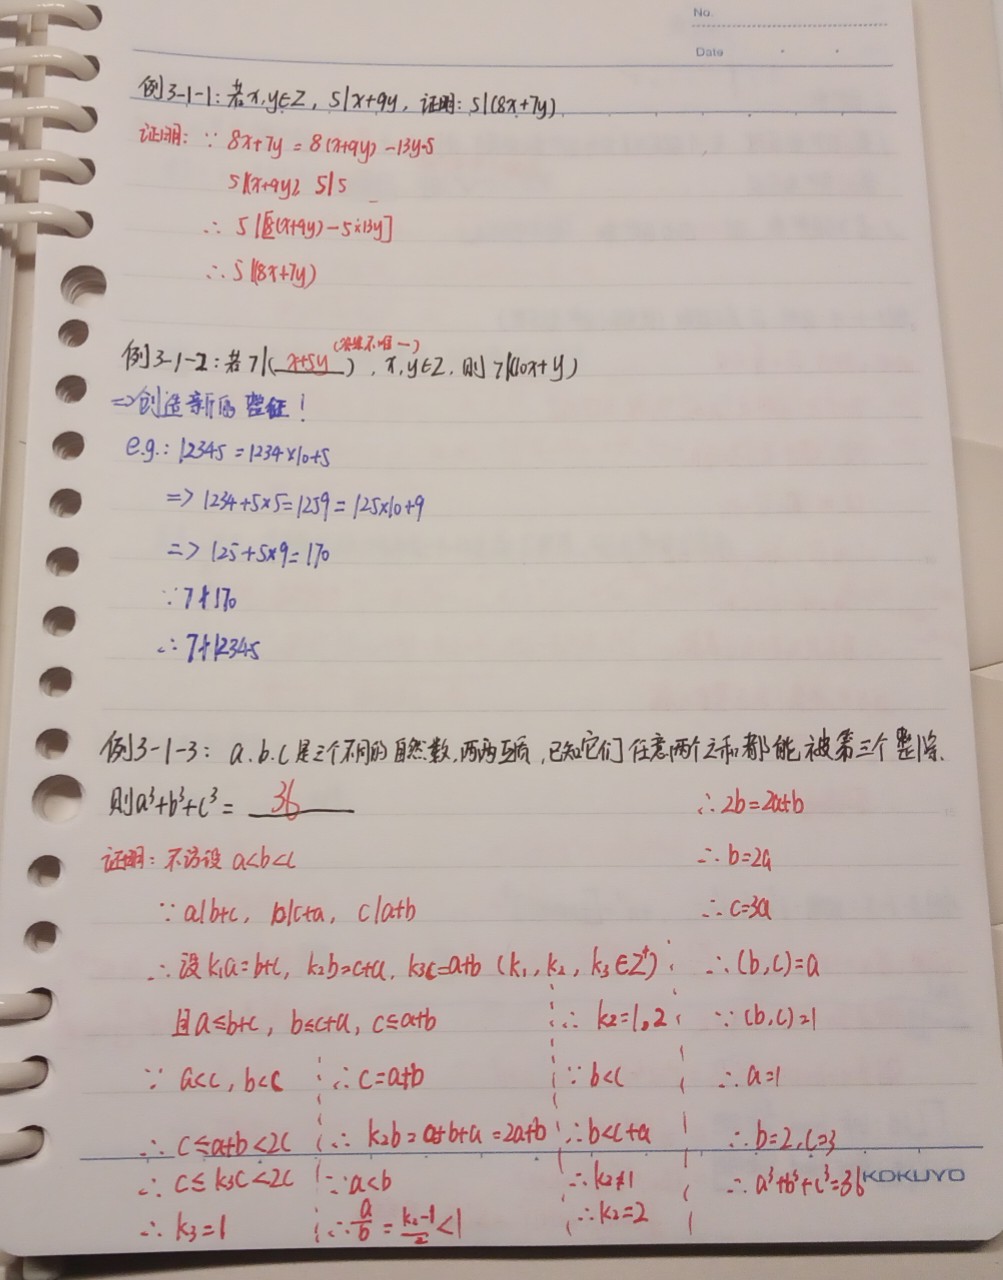 No.
Date
例3-1-1：若x,y∈Z，5|x+9y，证明：5|(8x+7y)
证明：∵ 8x+7y = 8(x+9y) -13y·5
5|(x+9y), 5|5
∴ 5|[8(x+9y)-5×13y]
∴ 5|(8x+7y)
(答案不唯一)
例3-1-2：若7|( x+5y )，x,y∈Z，则7|(10x+y)
⇒创造新的整征！
e.g.: 12345 = 1234×10+5
=> 1234+5×5=1259=125×10+9
=> 125+5×9=170
∵ 7∤170
∴ 7∤12345
例3-1-3：a.b.c是三个不同的自然数,两两互质,已知它们任意两个之和都能被第三个整除.
则a³+b³+c³= 36
证明：不访设 a<b<c
∵ a|b+c, b|c+a, c|a+b
∴ 设k₁a=b+c, k₂b=c+a, k₃c=a+b (k₁, k₂, k₃∈Z⁺)
且a≤b+c, b≤c+a, c≤a+b
∵ a<c, b<c
∴ c≤a+b<2c
∴ c≤k₃c<2c
∴ k₃=1
∴ c=a+b
∴ k₂b=a+b+a=2a+b
∵ a<b
∴ a/b = (k₂-1)/2 <1
∴ k₂=1,2
∵ b<c
∴ b<c+a
∴ k₂≠1
∴ k₂=2
∴ 2b=2a+b
∴ b=2a
∴ c=3a
∴ (b,c)=a
∵ (b,c)=1
∴ a=1
∴ b=2,c=3
∴ a³+b³+c³=36
KOKUYO